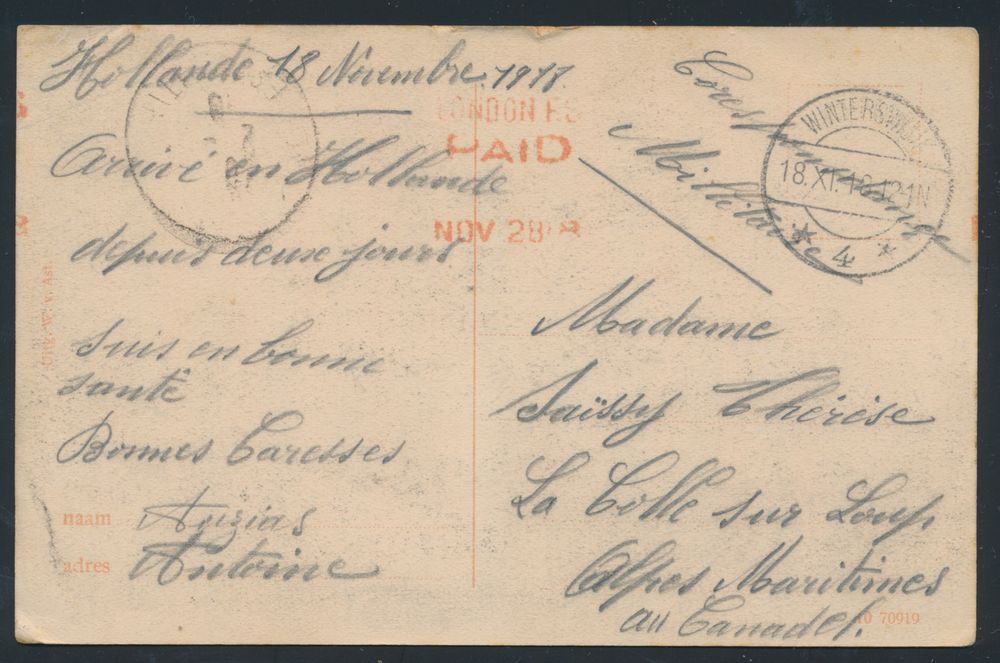 Hollande 18 Novembre 1918
Arrivé en Hollande
depuis deux jours
suis en bonne
santé
Bonnes Caresses
naam Auzias
adres Antoine
Uitg. W. v. Ast.
LONDON F.S
PAID
NOV 28
Millitaire
WINTERSWIJK
18.XI.18.12-1N
* 4 *
Madame
Saïssy Thérèse
La Colle sur Loup
Alpes Maritimes
au Canadel.
10 70919